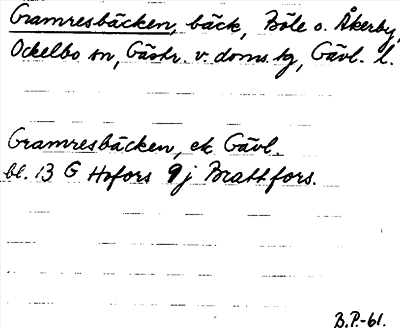 Gramresbäcken, bäck, Böle o. Åkerby,
Ockelbo sn, Gästr. v. doms. tg, Gävl. l.
Gramresbäcken, ek Gävl.
bl. 13 G Hofors 9j Brattfors.
B.P.-61.